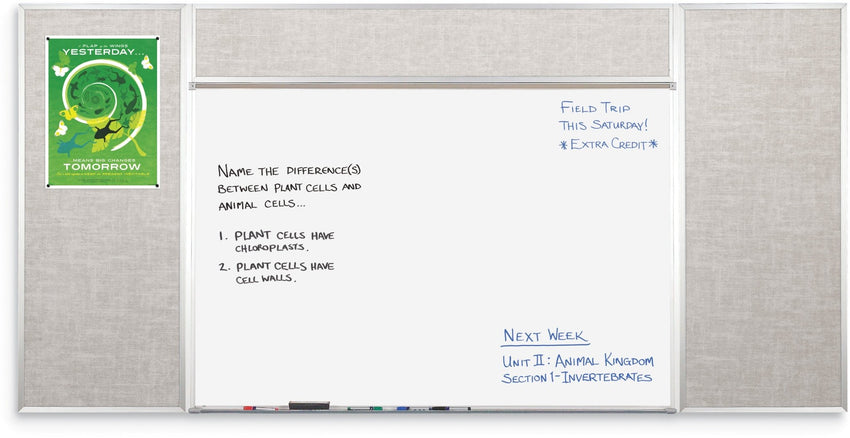 A FLAP of the WINGS
YESTERDAY...
...MEANS BIG CHANGES
TOMORROW
NAME THE DIFFERENCE(S)
BETWEEN PLANT CELLS AND
ANIMAL CELLS...
1. PLANT CELLS HAVE
CHLOROPLASTS.
2. PLANT CELLS HAVE
CELL WALLS.
FIELD TRIP
THIS SATURDAY!
*EXTRA CREDIT*
NEXT WEEK
UNIT II: ANIMAL KINGDOM
SECTION 1-INVERTEBRATES